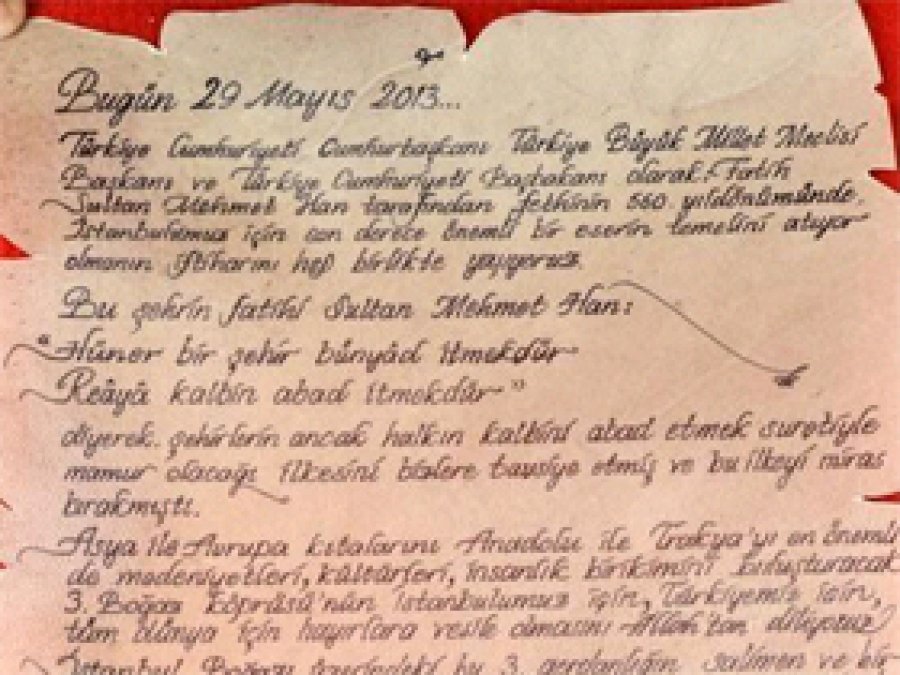 Bugün 29 Mayıs 2013...
Türkiye Cumhuriyeti Cumhurbaşkanı Türkiye Büyük Millet Meclisi
Başkanı ve Türkiye Cumhuriyeti Başbakanı olarak, Fatih
Sultan Mehmet Han tarafından fethinin 560. yıldönümünde,
İstanbulumuz için son derece önemli bir eserin temelini atıyor
olmanın iftiharını hep birlikte yaşıyoruz.
Bu şehrin fatihi Sultan Mehmet Han:
"Hüner bir şehir bünyâd itmekdür
Reâyâ kalbin abad itmekdür"
diyerek, şehirlerin ancak halkın kalbini abad etmek suretiyle
mamur olacağı ilkesini bizlere tavsiye etmiş ve bu ilkeyi miras
bırakmıştı.
Asya ile Avrupa kıtalarını Anadolu ile Trakya'yı en önemli
de medeniyetleri, kültürleri, insanlık birikimini buluşturacak
3. Boğaz Köprüsü'nün İstanbulumuz için, Türkiyemiz için,
tüm dünya için hayırlara vesile olmasını Allah'tan diliyoruz
İstanbul Boğazı üzerindeki bu 3. gerdanlığın salimen ve bir